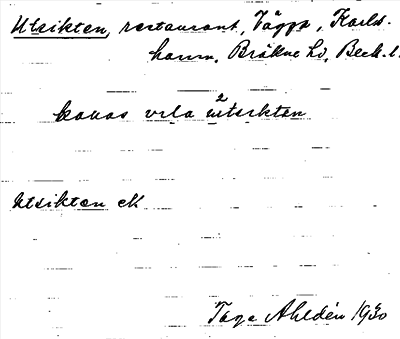 Utsikten, restaurant, Täppe, Karls-
hamn, Bräkne hd, Bleck. l.
kallas vela ²utsikten
Utsikten ek
Tage Ahldén 1930